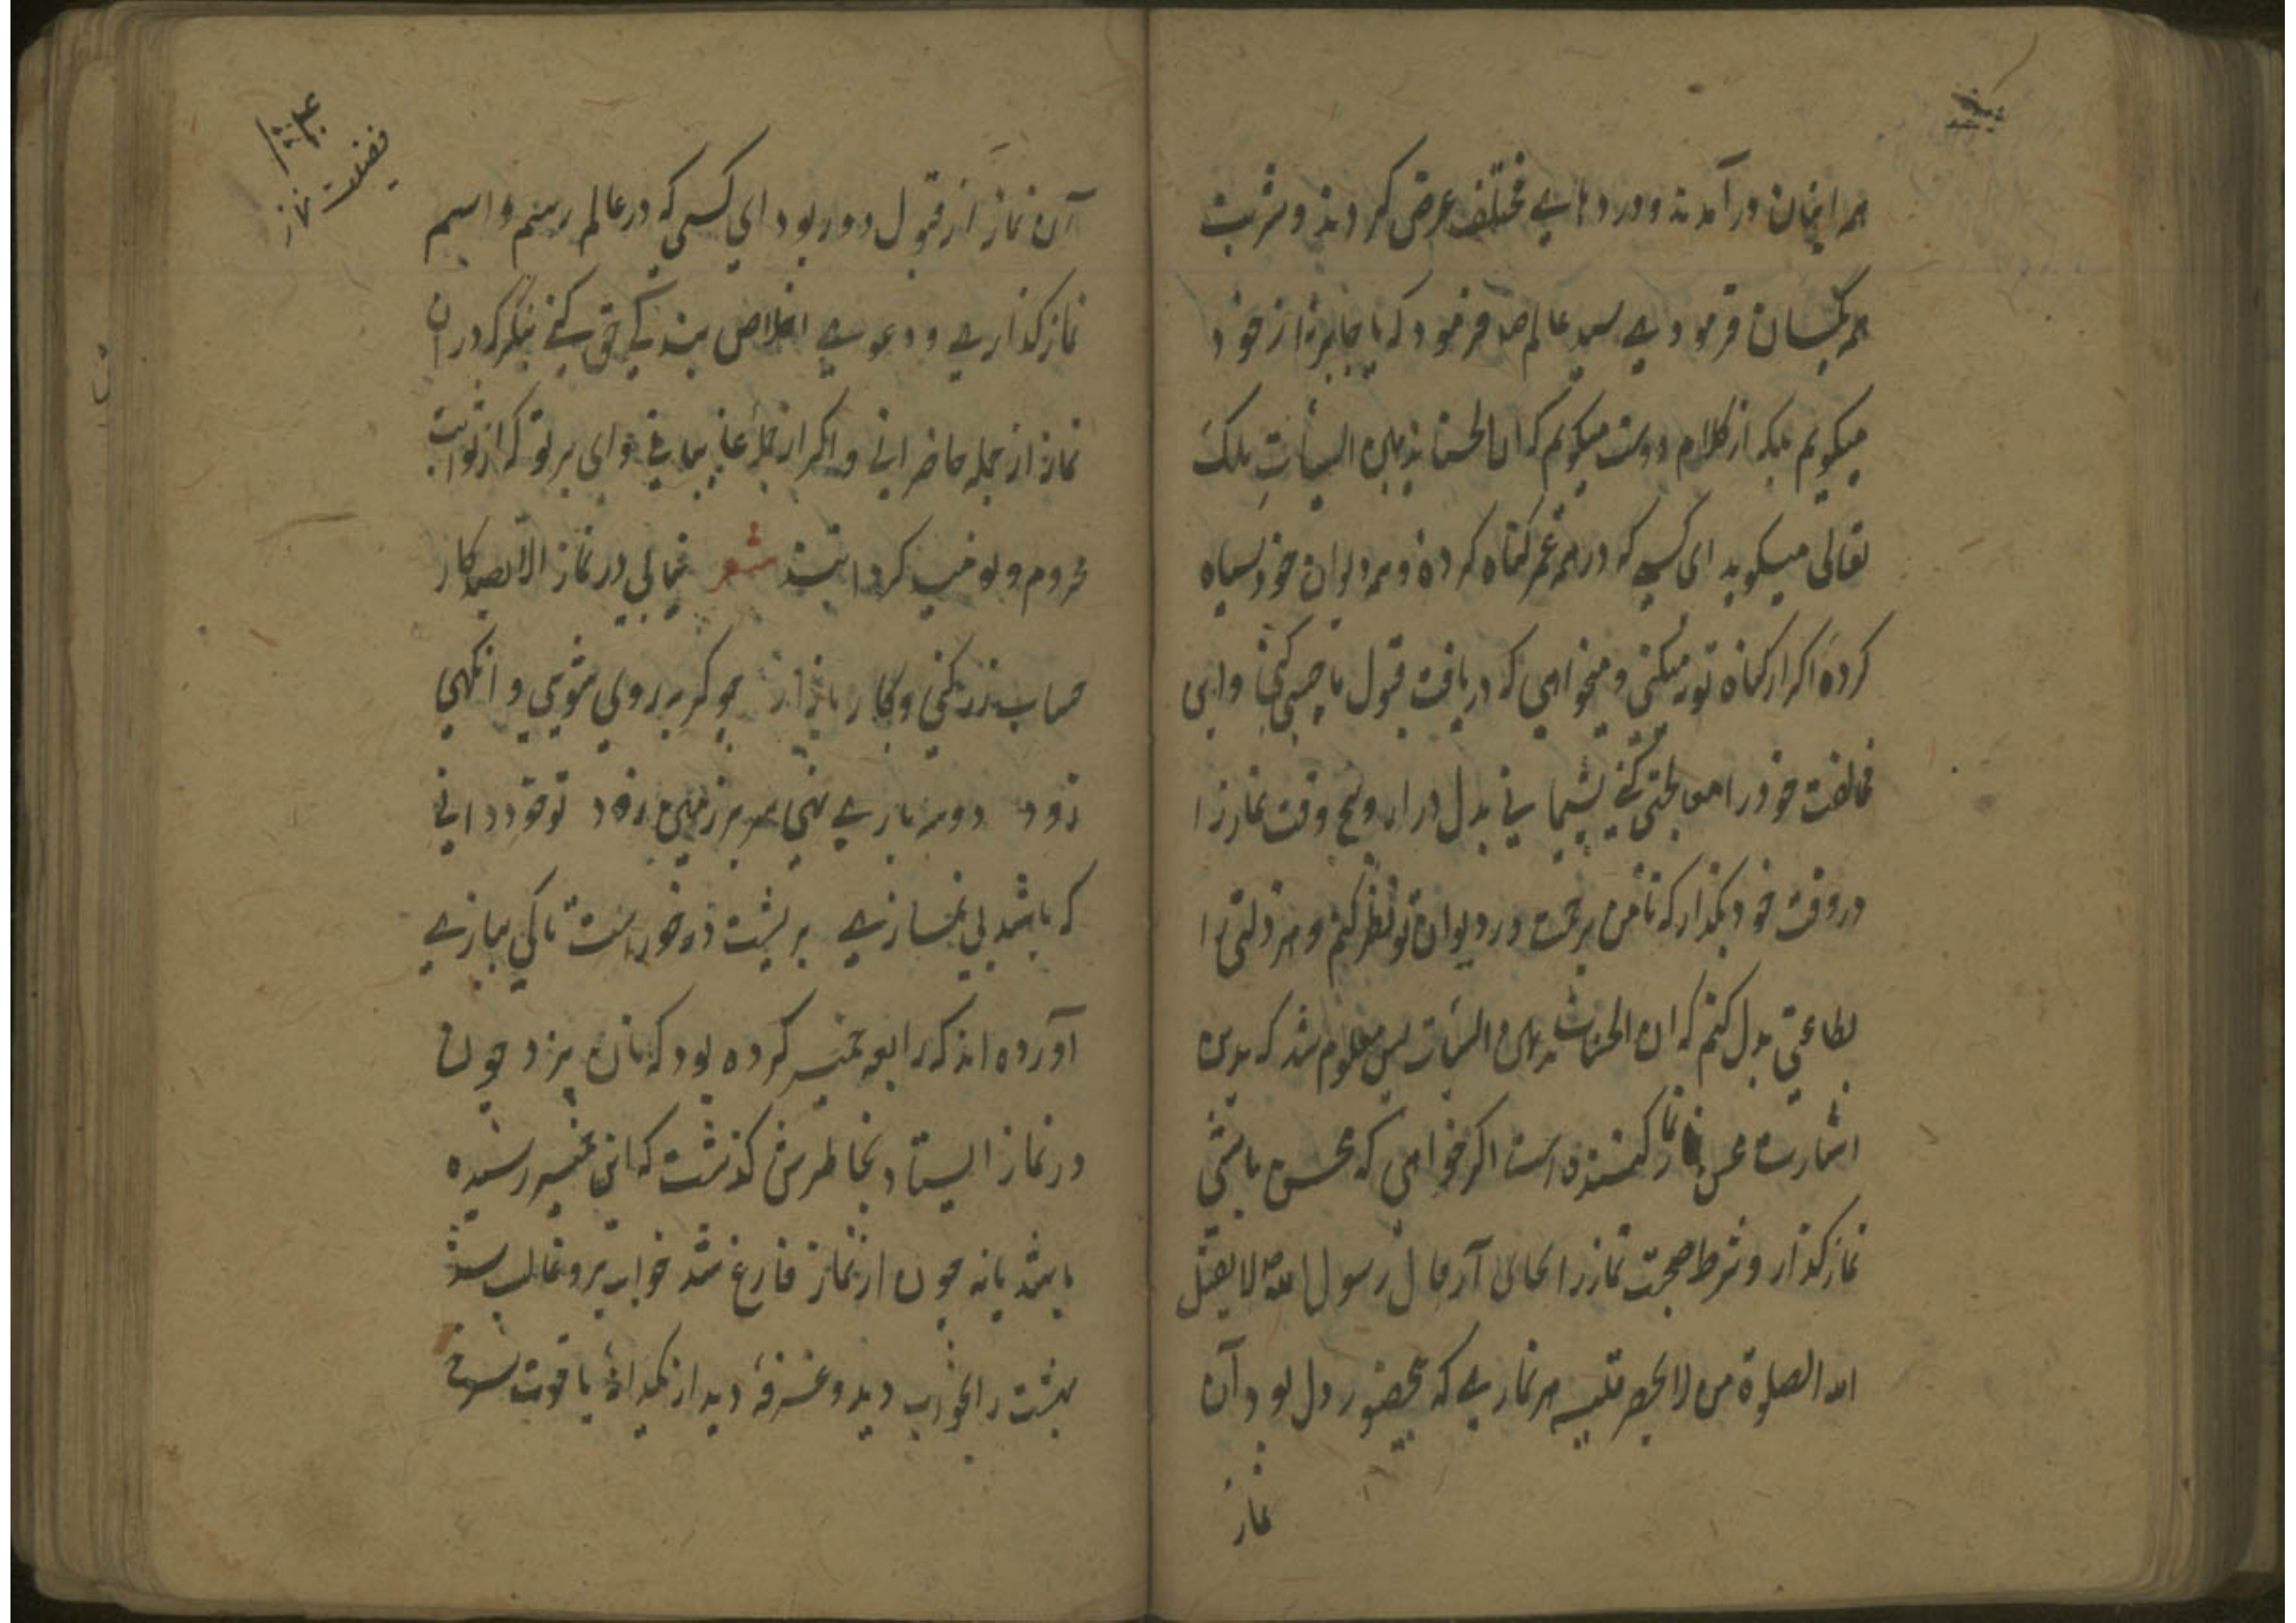 همه ایشان درآمدند و دردهایے مختلف عرض کردند و شربت
همه یکسان فرمودے سید عالم صلعم فرمود که یا جابر از خود
میکویم بلکه از کلام دوست میکویم که ان الحسنات یذهبن السیأتِ ملک
تعالی میکوید ای کسی که در همه عمر کناه کرده و همه دیوان خود سیاه
کردهٔ اکر از کناه توبه میکنی و میخواهی که دریافت قبول ما چیزی کنی و این
مخالفت خود را معالجتی کنے پشیمانی بدل درار و پنج وقت نماز را
در وقت خود بکذار که تا من برحمت در دیوان تو نظر کنم و هر ذلتی را
بطاعتی بدل کنم که ان الحسنات یذهبن السیأت پس معلوم شد که بدین
اشارت محسن نماز کننده است اکر خواهی که محسن باشی
نماز کذار و شرط صحبت نماز را بجای آر قال رسول الله لا یقبل
الله الصلوة من لا یحضر قلبه هر نمازے که بحضور دل بود آن
نماز
فضیلت نماز
آن نماز از قبول دور بود ای کسی که در عالم رسم و اسم
نماز کذارے و دعوے اخلاص بندکے حق کنے بنکر که در ان
نماز از جمله حاضرانی و اکر از جمله غایبانی وای بر تو که از ثوابت
محروم و بی نصیب کردانیدند شعر خیالی در نماز الا بصد کار
حساب زر کنی و کار بازار چو کربه روی شویی و انکهی
زود دو سه بارے نهی سر بر زمین زود تو خود دانی
که باشد بی نمازے بر پشت ذر خورست تا کی بیازے
آورده اند که رابعه خمیر کرده بود که نان پزد چون
در نماز ایستاد بخاطرش کذشت که این خمیر رسیده
باشد یانه چون از نماز فارغ شد خواب برو غالب شد
بهشت را بخواب دید و غرفهٔ دید از یکدانهٔ یاقوت سرخ